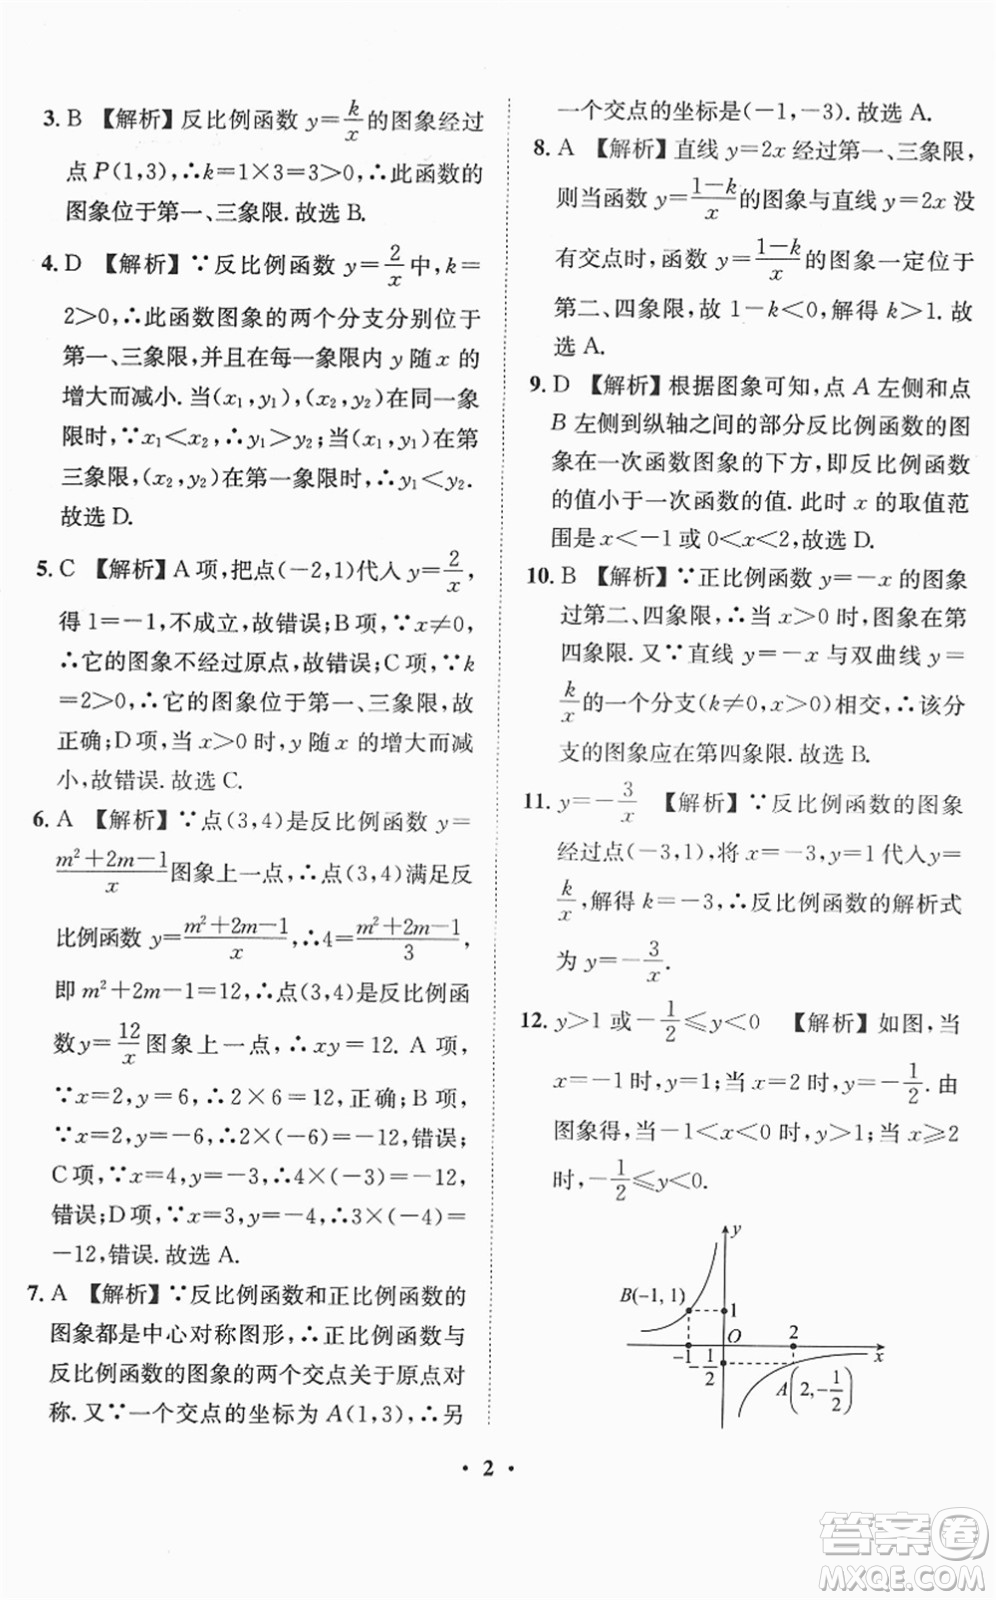 3. B 【解析】反比例函数 y=k/x的图象经过
点 P(1,3),∴k=1×3=3>0,∴此函数的
图象位于第一、三象限.故选 B.
4. D 【解析】∵反比例函数 y=2/x中,k=
2>0,∴此函数图象的两个分支分别位于
第一、三象限,并且在每一象限内 y 随 x 的
增大而减小.当(x₁,y₁),(x₂,y₂)在同一象
限时,∵x₁<x₂,∴y₁>y₂;当(x₁,y₁)在第
三象限,(x₂,y₂)在第一象限时,∴y₁<y₂.
故选 D.
5. C 【解析】A 项,把点(-2,1)代入 y=2/x,
得 1=-1,不成立,故错误;B 项,∵x≠0,
∴它的图象不经过原点,故错误;C 项,∵k
=2>0,∴它的图象位于第一、三象限,故
正确;D 项,当 x>0 时,y 随 x 的增大而减
小,故错误.故选 C.
6. A 【解析】∵点(3,4)是反比例函数 y=
(m²+2m-1)/x图象上一点,∴点(3,4)满足反
比例函数 y=(m²+2m-1)/x,∴4=(m²+2m-1)/3,
即 m²+2m-1=12,∴点(3,4)是反比例函
数 y=12/x图象上一点,∴xy=12. A 项,
∵x=2,y=6,∴2×6=12,正确;B 项,
∵x=2,y=-6,∴2×(-6)=-12,错误;
C 项,∵x=4,y=-3,∴4×(-3)=-12,
错误;D 项,∵x=3,y=-4,∴3×(-4)=
-12,错误.故选 A.
7. A 【解析】∵反比例函数和正比例函数的
图象都是中心对称图形,∴正比例函数与
反比例函数的图象的两个交点关于原点对
称.又∵一个交点的坐标为 A(1,3),∴另
一个交点的坐标是(-1,-3).故选 A.
8. A 【解析】直线 y=2x 经过第一、三象限,
则当函数 y=(1-k)/x的图象与直线 y=2x 没
有交点时,函数 y=(1-k)/x的图象一定位于
第二、四象限,故 1-k<0,解得 k>1.故
选 A.
9. D 【解析】根据图象可知,点 A 左侧和点
B 左侧到纵轴之间的部分反比例函数的图
象在一次函数图象的下方,即反比例函数
的值小于一次函数的值.此时 x 的取值范
围是 x<-1 或 0<x<2.故选 D.
10. B 【解析】∵正比例函数 y=-x 的图象
过第二、四象限,∴当 x>0 时,图象在第
四象限.又∵直线 y=-x 与双曲线 y=
k/x的一个分支(k≠0,x>0)相交,∴该分
支的图象应在第四象限.故选 B.
11. y=-3/x 【解析】∵反比例函数的图象
经过点(-3,1),将 x=-3,y=1 代入y=
k/x,解得 k=-3,∴反比例函数的解析式
为 y=-3/x.
12. y>1 或-1/2≤y<0 【解析】如图,当
x=-1 时,y=1;当 x=2 时,y=-1/2.由
图象得,当-1<x<0 时,y>1;当 x≥2
时,-1/2≤y<0.
y
B(-1, 1)
1
-1
O
2
x
-1/2
A(2,-1/2)
· 2 ·
答案卷
MXQE.COM